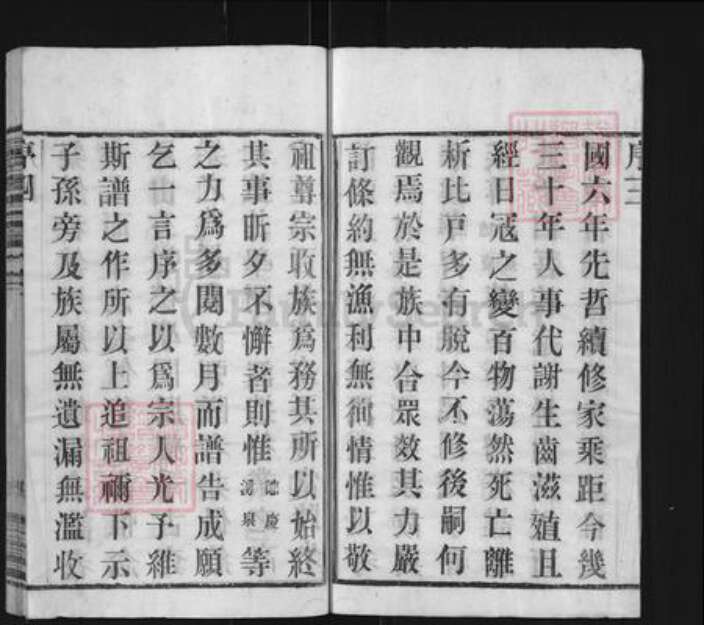 序三
國六年先哲續修家乘距今幾
三十年人事代謝生齒滋殖且
經日寇之變百物蕩然死亡離
析比戸多有脫今不修後嗣何
觀焉於是族中合眾效其力嚴
訂條約無漁利無徇情惟以敬
祖尊宗收族爲務其所以始終
其事昕夕不懈者則惟德慶湯泉等
之力爲多閱數月而譜告成願
乞一言序之以爲宗人光予維
斯譜之作所以上追祖禰下示
子孫旁及族屬無遺漏無濫收
序四
FamilySearch